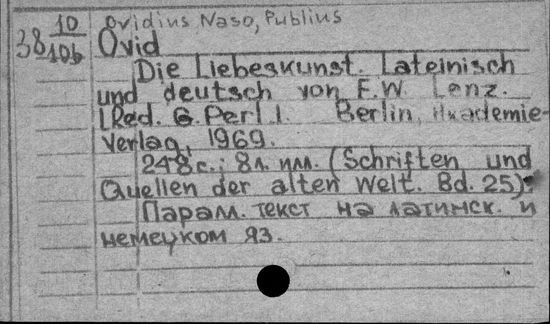 38 10/10b
Ovidius Naso, Publius
Ovid
Die Liebeskunst. Lateinisch
und deutsch von F.W. Lenz.
[Red. G. Perl]. Berlin, Akademie-
Verlag, 1969.
248 с.; 8 л. илл. (Schriften und
Quellen der alten Welt. Bd. 25).
Парал. текст на латинск. и
немецком яз.